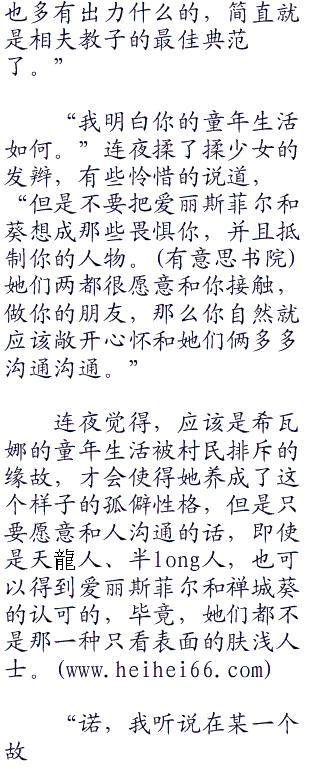 也多有出力什么的，简直就
是相夫教子的最佳典范
了。”
“我明白你的童年生活
如何。”连夜揉了揉少女的
发辫，有些怜惜的说道，
“但是不要把爱丽斯菲尔和
葵想成那些畏惧你，并且抵
制你的人物。(有意思书院)
她们两都很愿意和你接触，
做你的朋友，那么你自然就
应该敞开心怀和她们俩多多
沟通沟通。”
连夜觉得，应该是希瓦
娜的童年生活被村民排斥的
缘故，才会使得她养成了这
个样子的孤僻性格，但是只
要愿意和人沟通的话，即使
是天龍人、半long人，也可
以得到爱丽斯菲尔和禅城葵
的认可的，毕竟，她们都不
是那一种只看表面的肤浅人
士。(www.heihei66.com)
“诺，我听说在某一个
故